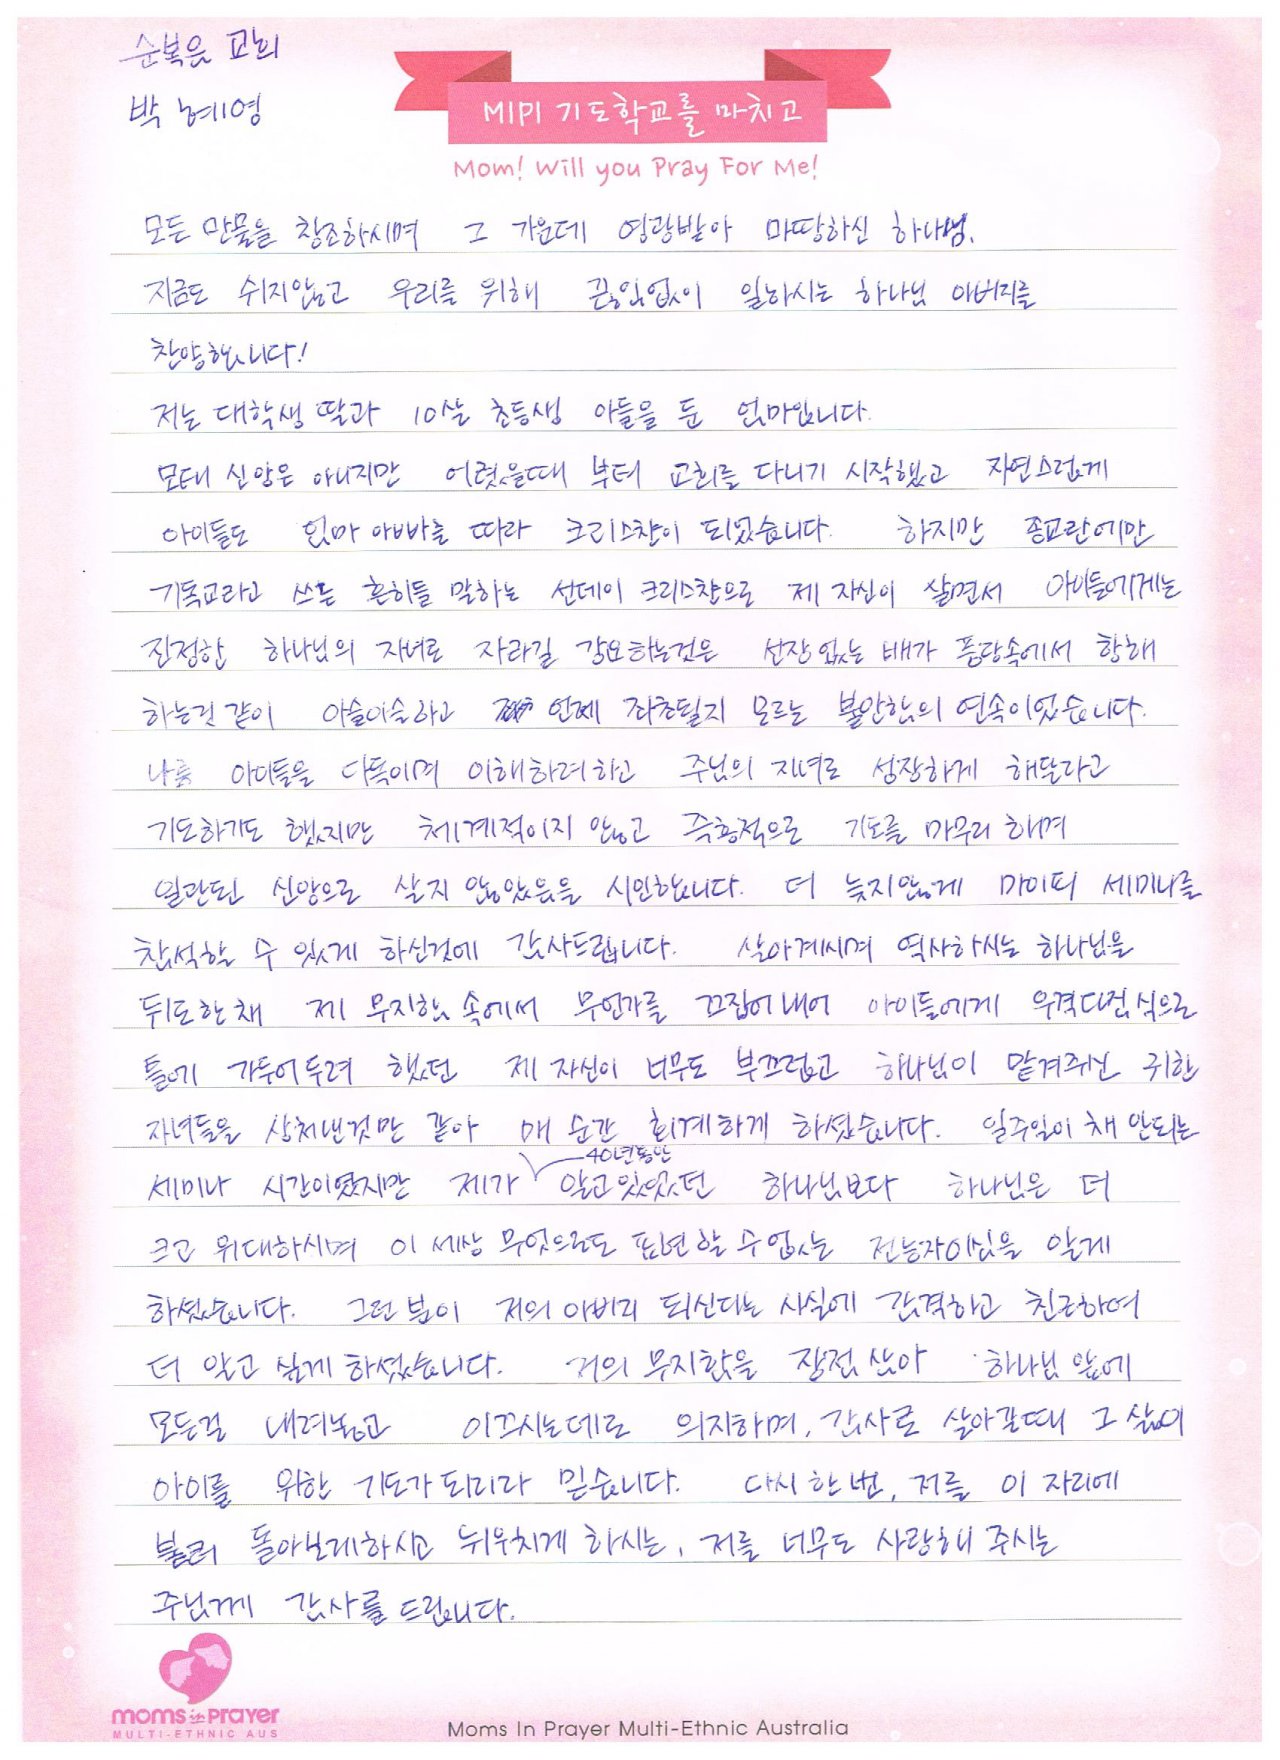 순복음 교회
박 혜영
MIPI 기도학교를 마치고
Mom! Will you Pray For Me!
모든 만물을 창조하시며 그 가운데 영광받아 마땅하신 하나님.
지금도 쉬지않고 우리를 위해 끊임없이 일하시는 하나님 아버지를
찬양합니다!
저는 대학생 딸과 10살 초등생 아들을 둔 엄마입니다.
모태 신앙은 아니지만 어렸을때 부터 교회를 다니기 시작했고 자연스럽게
아이들도 엄마 아빠를 따라 크리스챤이 되었습니다. 하지만 종교란에만
기독교라고 쓰는 흔히들 말하는 선데이 크리스챤으로 제 자신이 살면서 아이들에게는
진정한 하나님의 자녀로 자라길 강요하는것은 선장 없는 배가 풍랑속에서 항해
하는것 같이 아슬아슬하고 언제 좌초될지 모르는 불안함의 연속이었습니다.
나름 아이들을 다독이며 이해하려하고 주님의 자녀로 성장하게 해달라고
기도하기도 했지만 체계적이지 않고 즉흥적으로 기도를 마무리 하며
일관된 신앙으로 살지 않았음을 시인합니다. 더 늦지않게 마이피 세미나를
참석할 수 있게 하신것에 감사드립니다. 살아계시며 역사하시는 하나님을
뒤로한채 제 무지함 속에서 무언가를 끄집어내어 아이들에게 우격다짐식으로
틀에 가두어두려 했던 제 자신이 너무도 부끄럽고 하나님이 맡겨주신 귀한
자녀들을 상처낸것만 같아 매 순간 회계하게 하셨습니다. 일주일이 채 안되는
세미나 시간이였지만 제가 40년동안 알고있었던 하나님보다 하나님은 더
크고 위대하시며 이 세상 무엇으로도 표현할 수 없는 전능자이심을 알게
하셨습니다. 그런 분이 저의 아버지 되신다는 사실에 감격하고 친근하여
더 알고 싶게 하셨습니다. 저의 무지함을 장점 삼아 하나님 앞에
모든걸 내려놓고 이끄시는데로 의지하며, 감사로 살아갈때 그 삶이
아이를 위한 기도가 되리라 믿습니다. 다시 한 번, 저를 이 자리에
불러 돌아보게하시고 뉘우치게 하시는, 저를 너무도 사랑해 주시는
주님께 감사를 드립니다.
moms in prayer
MULTI-ETHNIC AUS
Moms In Prayer Multi-Ethnic Australia